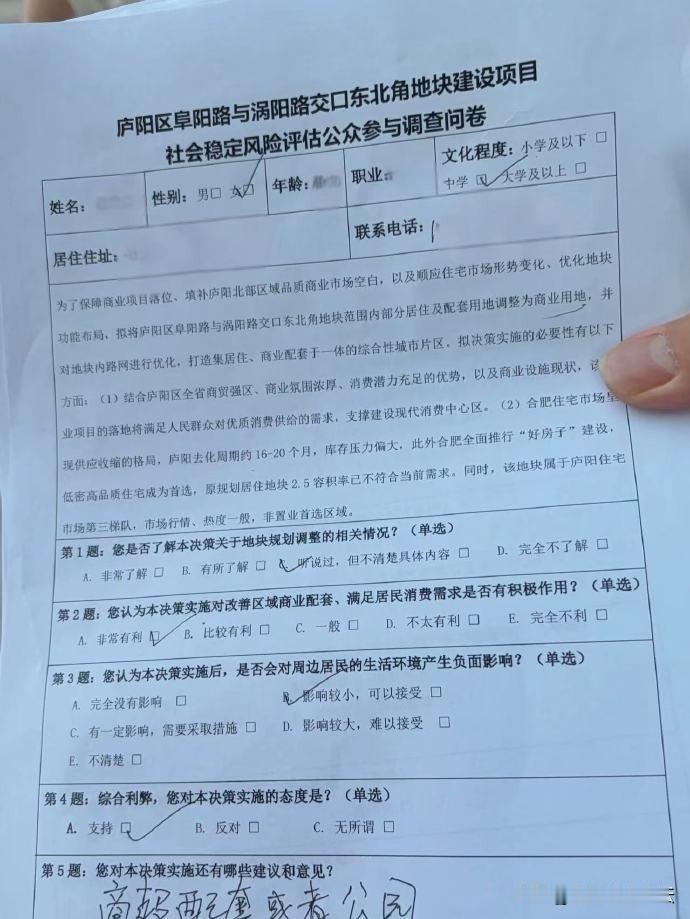 庐阳区阜阳路与涡阳路交口东北角地块建设项目
社会稳定风险评估公众参与调查问卷
姓名： 性别：男□ 女□ 年龄： 职业： 文化程度：小学及以下 □
中学 □ 大学及以上 □
居住住址： 联系电话：
为了保障商业项目落位、填补庐阳北部区域品质商业市场空白，以及顺应住宅市场形势变化、优化地块
功能布局，拟将庐阳区阜阳路与涡阳路交口东北角地块范围内部分居住及配套用地调整为商业用地，并
对地块内路网进行优化，打造集居住、商业配套于一体的综合性城市片区。拟决策实施的必要性有以下
方面：（1）结合庐阳区全省商贸强区、商业氛围浓厚、消费潜力充足的优势，以及商业设施现状，该
业项目的落地将满足人民群众对优质消费供给的需求，支撑建设现代消费中心区。（2）合肥住宅市场呈
现供应收缩的格局，庐阳去化周期约16-20个月，库存压力偏大，此外合肥全面推行“好房子”建设，
低密高品质住宅成为首选，原规划居住地块2.5容积率已不符合当前需求。同时，该地块属于庐阳住宅
市场第三梯队，市场行情、热度一般，非置业首选区域。
第1题：您是否了解本决策关于地块规划调整的相关情况？（单选）
A. 非常了解 □ B. 有所了解 □ 听说过，但不清楚具体内容 □ D. 完全不了解 □
第2题：您认为本决策实施对改善区域商业配套、满足居民消费需求是否有积极作用？（单选）
A. 非常有利 □ B. 比较有利 □ C. 一般 □ D. 不太有利 □ E. 完全不利 □
第3题：您认为本决策实施后，是否会对周边居民的生活环境产生负面影响？（单选）
A. 完全没有影响 □ B. 影响较小，可以接受 □
C. 有一定影响，需要采取措施 □ D. 影响较大，难以接受 □
E. 不清楚 □
第4题：综合利弊，您对本决策实施的态度是？（单选）
A. 支持 □ B. 反对 □ C. 无所谓 □
第5题：您对本决策实施还有哪些建议和意见？
商场配套或者公园